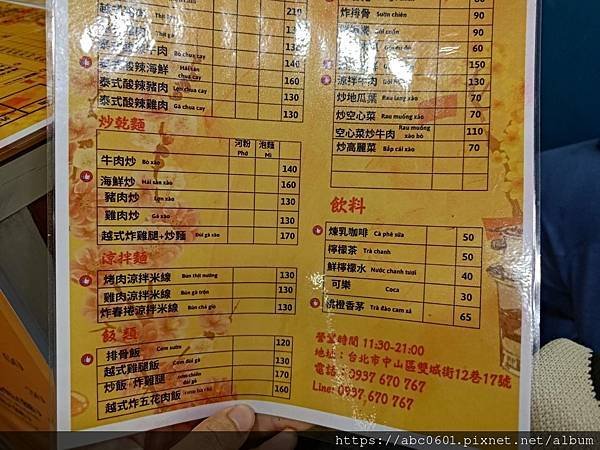 210
130
140
泰式酸辣海鮮 Hải sản chua cay 160
泰式酸辣豬肉 Lợn chua cay 130
泰式酸辣雞肉 Gà chua cay 130
炒乾麵
河粉 Phở 泡麵 Mì
牛肉炒 Bò xào 140
海鮮炒 Hải sản xào 160
豬肉炒 Lợn xào 130
雞肉炒 Gà xào 130
越式炸雞腿+炒麵 Đùi gà xào 170
涼拌麵
烤肉涼拌米線 Bún thịt nướng 130
雞肉涼拌米線 Bún gà trộn 130
炸春捲涼拌米線 Bún chả giò 130
飯類
排骨飯 Cơm sườn 120
越式雞腿飯 Cơm đùi gà 130
炒飯 炸雞腿 Cơm chiên đùi gà 170
越式炸五花肉飯 160
90
炸排骨 Sườn chiên 90
80
60
150
涼拌牛肉 130
炒地瓜葉 Rau lang xào 70
炒空心菜 Rau muống xào 70
空心菜炒牛肉 Rau muống xào bò 110
炒高麗菜 Bắp cải xào 70
飲料
煉乳咖啡 Cà phê sữa 50
檸檬茶 Trà chanh 50
鮮檸檬水 Nước chanh tươi 40
可樂 Coca 30
桃橙香茅 Trà đào cam sả 65
營業時間 11:30-21:00
地址：台北市中山區雙城街12巷17號
電話：0937 670 767
Line: 0937 670 767
https://abc0601.pixnet.net/album